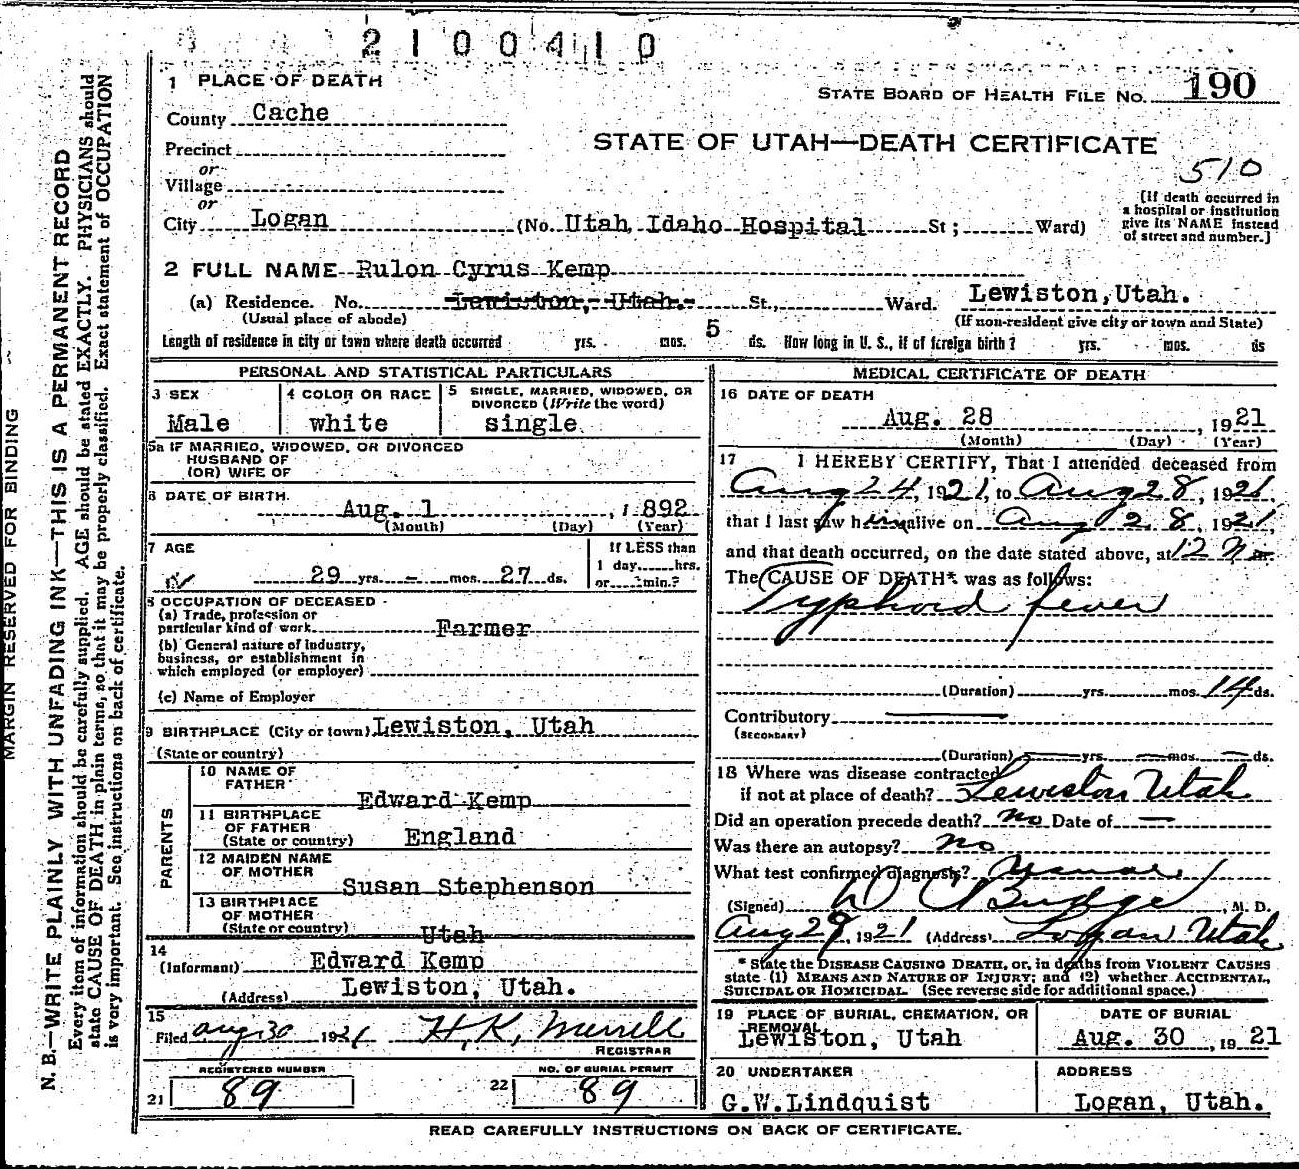 2100410
1 PLACE OF DEATH
STATE BOARD OF HEALTH FILE NO. 190
County Cache
STATE OF UTAH—DEATH CERTIFICATE
Precinct
or
510
Village
or
[If death occurred in a hospital or institution give its NAME instead of street and number.]
City Logan (No. Utah Idaho Hospital St; Ward)
2 FULL NAME Rulon Cyrus Kemp
(a) Residence. No. Lewiston, Utah. St., Ward. Lewiston, Utah.
(Usual place of abode) (If non-resident give city or town and State)
Length of residence in city or town where death occurred yrs. mos. 5 ds. How long in U. S., if of foreign birth? yrs. mos. ds
PERSONAL AND STATISTICAL PARTICULARS
3 SEX 4 COLOR OR RACE 5 SINGLE, MARRIED, WIDOWED, OR
DIVORCED (Write the word)
Male white single
5a IF MARRIED, WIDOWED, OR DIVORCED
HUSBAND OF
(OR) WIFE OF
6 DATE OF BIRTH.
Aug. 1, 1892
(Month) (Day) (Year)
7 AGE If LESS than
1 day hrs.
29 yrs. - mos. 27 ds. or min.?
8 OCCUPATION OF DECEASED
(a) Trade, profession or
particular kind of work Farmer
(b) General nature of industry,
business, or establishment in
which employed (or employer)
(c) Name of Employer
9 BIRTHPLACE (City or town) Lewiston, Utah
(State or country)
PARENTS
10 NAME OF
FATHER
Edward Kemp
11 BIRTHPLACE
OF FATHER
(State or country) England
12 MAIDEN NAME
OF MOTHER
Susan Stephenson
13 BIRTHPLACE
OF MOTHER
(State or country)
Utah
14
(Informant) Edward Kemp
(Address) Lewiston, Utah.
15
Filed Aug 30 1921 H. K. Merrell
REGISTRAR
REGISTERED NUMBER NO. OF BURIAL PERMIT
21 89 22 89
MEDICAL CERTIFICATE OF DEATH
16 DATE OF DEATH
Aug. 28, 1921
(Month) (Day) (Year)
17 I HEREBY CERTIFY, That I attended deceased from
Aug 24, 1921, to Aug 28, 1921
that I last saw him alive on Aug 28, 1921
and that death occurred, on the date stated above, at 12 N m.
The CAUSE OF DEATH* was as follows:
Typhoid fever
(Duration) yrs. mos. 14 ds.
Contributory
(SECONDARY)
(Duration) yrs. mos. ds.
18 Where was disease contracted
if not at place of death? Lewiston Utah
Did an operation precede death? no Date of —
Was there an autopsy? no
What test confirmed diagnosis?
(Signed) D C Budge, M. D.
Aug 29, 1921 (Address) Logan Utah
* State the DISEASE CAUSING DEATH, or, in deaths from VIOLENT CAUSES
state (1) MEANS AND NATURE OF INJURY; and (2) whether ACCIDENTAL,
SUICIDAL OR HOMICIDAL. (See reverse side for additional space.)
19 PLACE OF BURIAL, CREMATION, OR REMOVAL DATE OF BURIAL
Lewiston, Utah Aug. 30, 1921
20 UNDERTAKER ADDRESS
G.W.Lindquist Logan, Utah.
READ CAREFULLY INSTRUCTIONS ON BACK OF CERTIFICATE.
MARGIN RESERVED FOR BINDING
N. B.—WRITE PLAINLY WITH UNFADING INK—THIS IS A PERMANENT RECORD
Every item of information should be carefully supplied. AGE should be stated EXACTLY. PHYSICIANS should
state CAUSE OF DEATH in plain terms, so that it may be properly classified. Exact statement of OCCUPATION
is very important. See instructions on back of certificate.